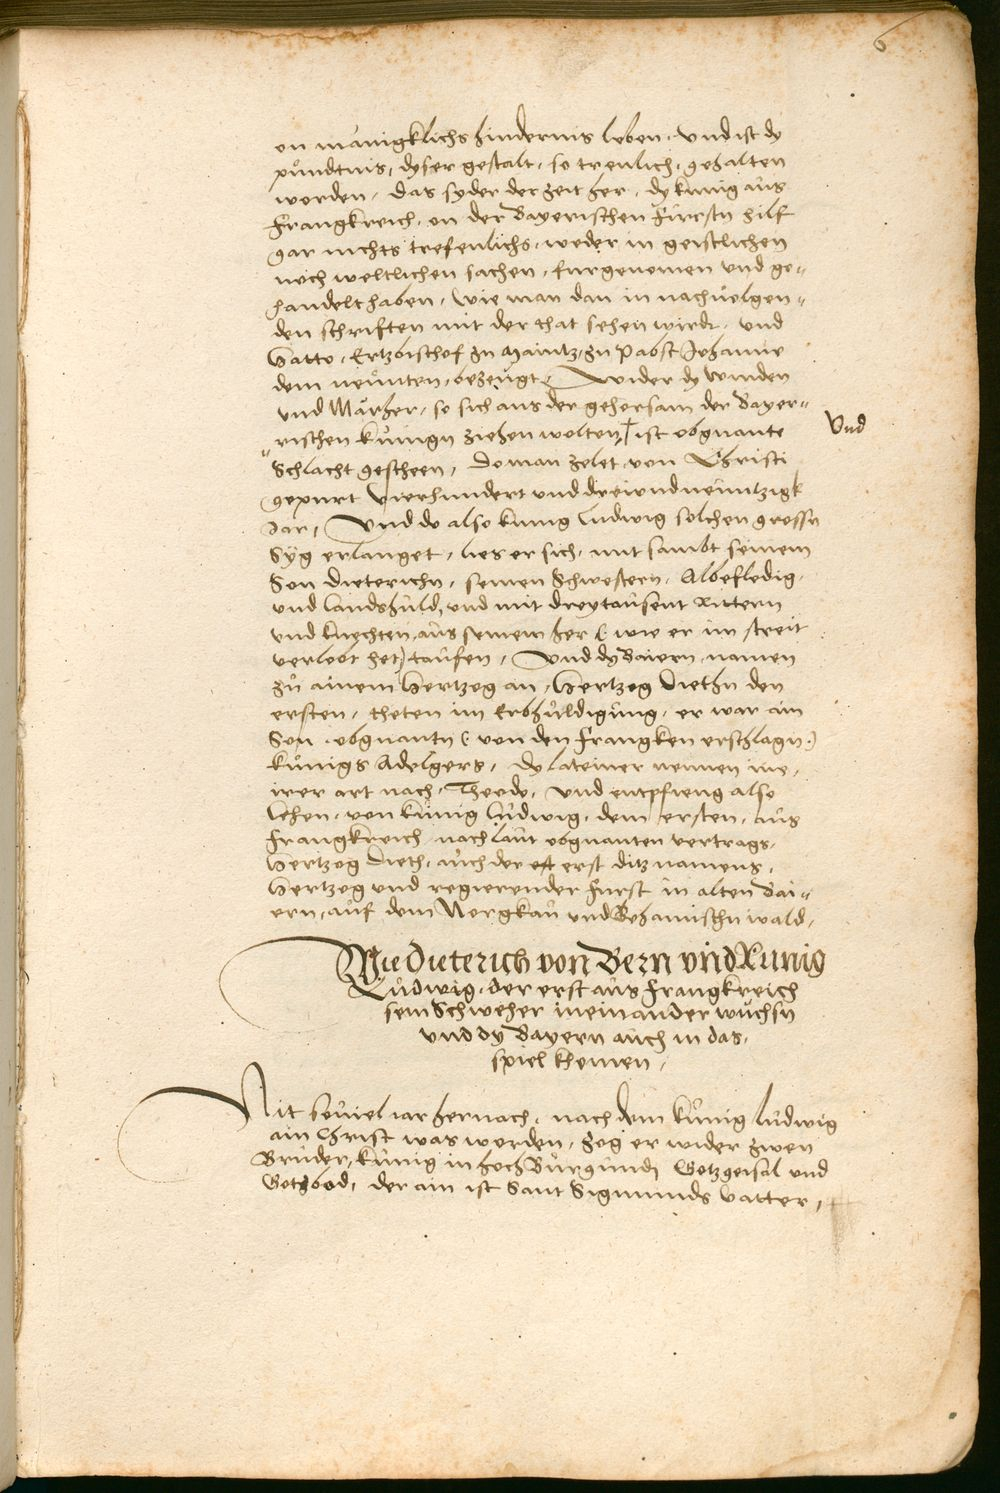 6
on mänigklichs hindernis leben. Vnd ist dy
pündtnis, dyser gestalt, so treulich, gehalten
worden, das syder der zeit her, dy künig aus
Frangkreich, on der Bayerischen Fürstn hilf
gar nichts trefenlichs, weder in geistlichen
noch weltlichen sachen, furgenomen vnd ge„
handelt haben, wie man dan in nachuolgen„
den schriften mit der that sehen wirdt, vnd
Hatto, Ertzbischof zu Maintz, zu Pabst Johanne
dem neunten, bezeugt, Wider dy Winden
vnd Märher, so sich aus der gehorsam der Bayer„
rischen künign ziehen wolten, † ist obgnante
Vnd
Schlacht gescheen, do man zelet von Christi
gepurt Vierhundert vnd dreiundneuntzigk
Jar, Vnd do also kunig ludwig solchen grossn
Syg erlanget, lies er sich, mit sambt seinem
Son dieterichn, seinen Schwestern, Albefledig,
vnd landshuld, vnd mit dreytausent Rittern
vnd knechten, aus seinem her (wie er im streit
verlobt het) taufen, Vnd dy Baiern, namen
zu ainem Hertzog an, Hertzog Diethn den
ersten, theten im Erbhuldigung, er war ain
Son obgnantn (von den Frangken erschlagn)
künigs Adelgers, dy lateiner nennen ine,
irer art nach, Theodo, vnd entpfieng also
lehen, von künig ludwig, dem ersten, aus
Frangkreich nach laut obgnanten vertrags,
Hertzog Dieth, auch der erst ditz namens,
Hertzog vnd regierender Furst in alten Bai„
ern, auf dem Norgkau vnd Behamischn wald,
Wie Dieterich von Bern vnd Kunig
Ludwig, der erst aus Frangkreich
sein Schweher ineinander wuchsn
vnd dy Bayern auch in das
spiel khomen,
Nit souiel iar hernach, nach dem kunig ludwig
ain Christ was worden, zog er wider zwen
Brüder, künig in hoch Burgund, Gotzgeisal vnd
Gotbod, der ain ist Sant Sigmunds vatter,